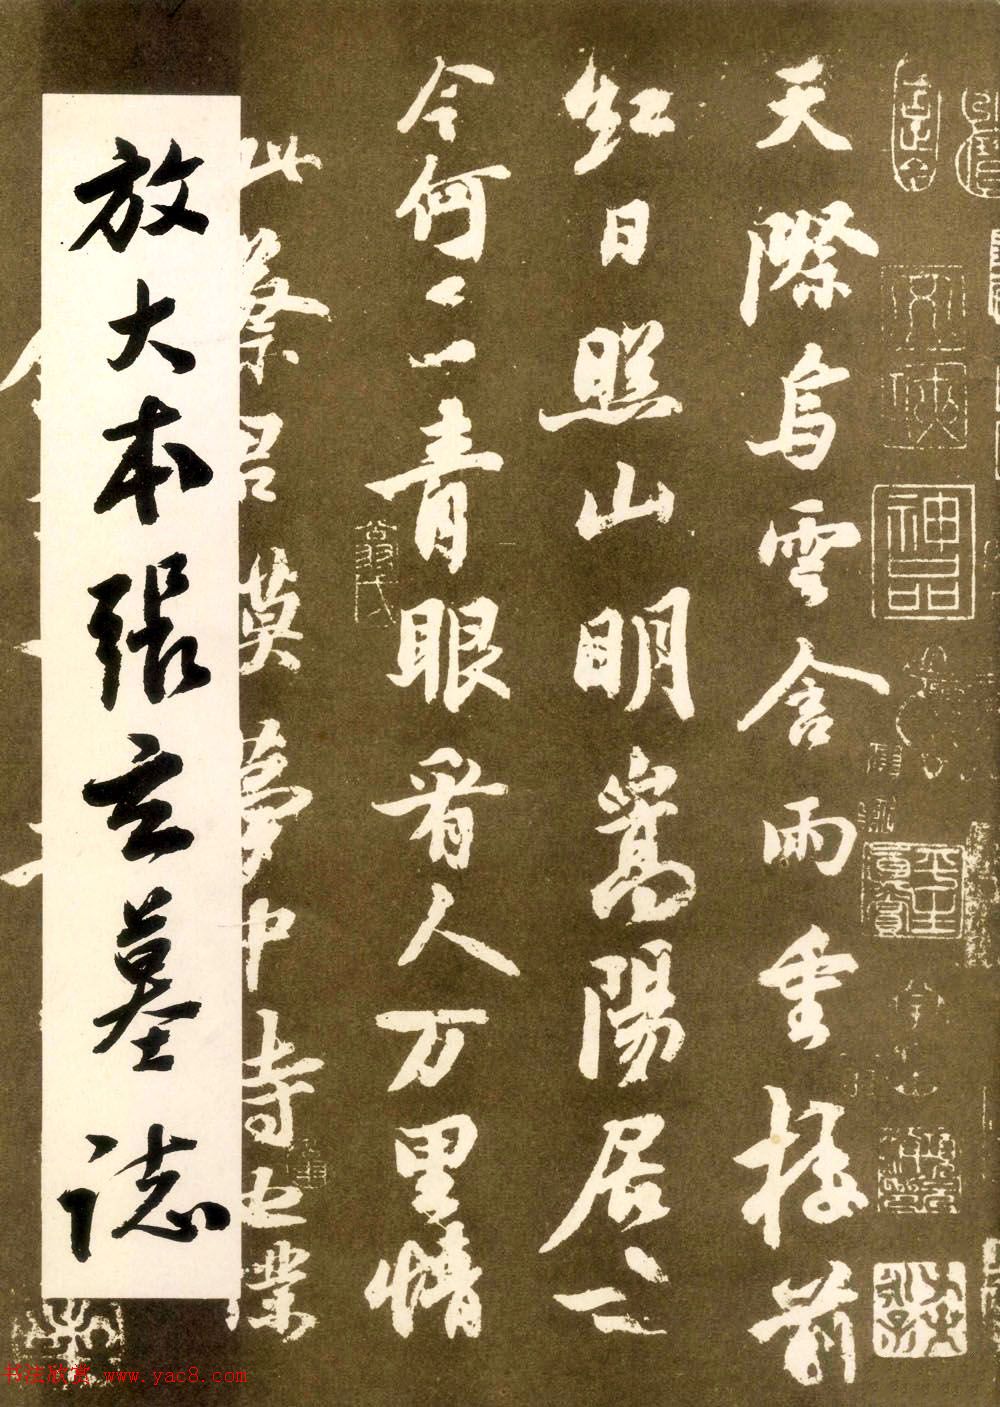 天際烏雲含雨重樓前
紅日照山明嵩陽居士
今何在青眼看人万里情
此蔡君謨夢中詩也僕
放大本張玄墓誌
神品
翁氏
书法欣赏 www.yac8.com